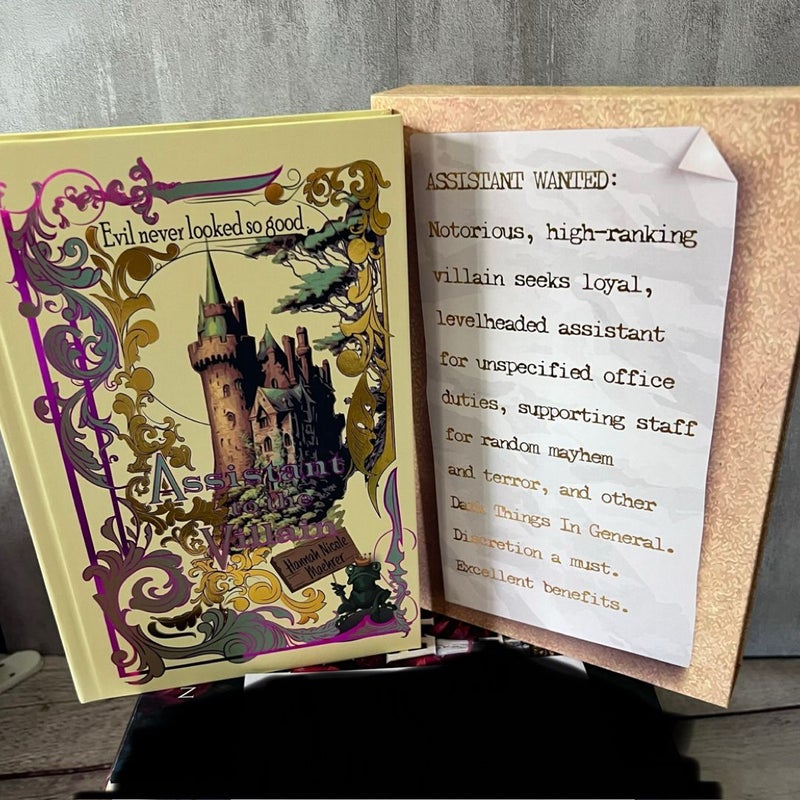 Evil never looked so good.
Assistant
to the
Villain
Hannah Nicole
Maehrer
ASSISTANT WANTED:
Notorious, high-ranking
villain seeks loyal,
levelheaded assistant
for unspecified office
duties, supporting staff
for random mayhem
and terror, and other
Dark Things In General.
Discretion a must.
Excellent benefits.